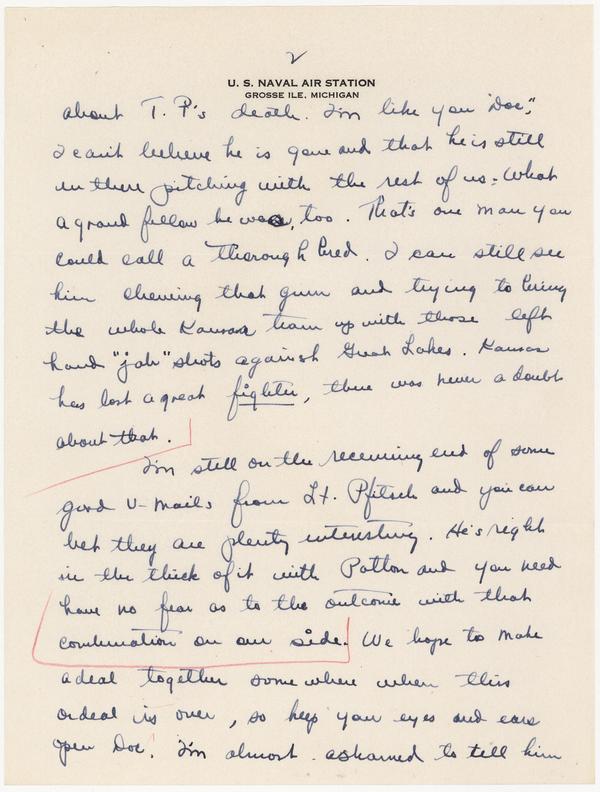 2
U. S. NAVAL AIR STATION
GROSSE ILE, MICHIGAN
about T. P's death. I'm like you "Doc",
I can't believe he is gone and that he is still
in there pitching with the rest of us. What
a grand fellow he was, too. That's one man you
could call a thorough bred. I can still see
him chewing that gum and trying to bring
the whole Kansas team up with those left
hand "jab" shots against Great Lakes. Kansas
has lost a great fighter, there was never a doubt
about that.
I'm still on the receiving end of some
good V-mails from Lt. Pfitsch and you can
bet they are plenty interesting. He's right
in the thick of it with Patton and you need
have no fear as to the outcome with that
combination on our side. We hope to make
a deal together some where when this
ordeal is over, so keep your eyes and ears
open Doc. I'm almost ashamed to tell him